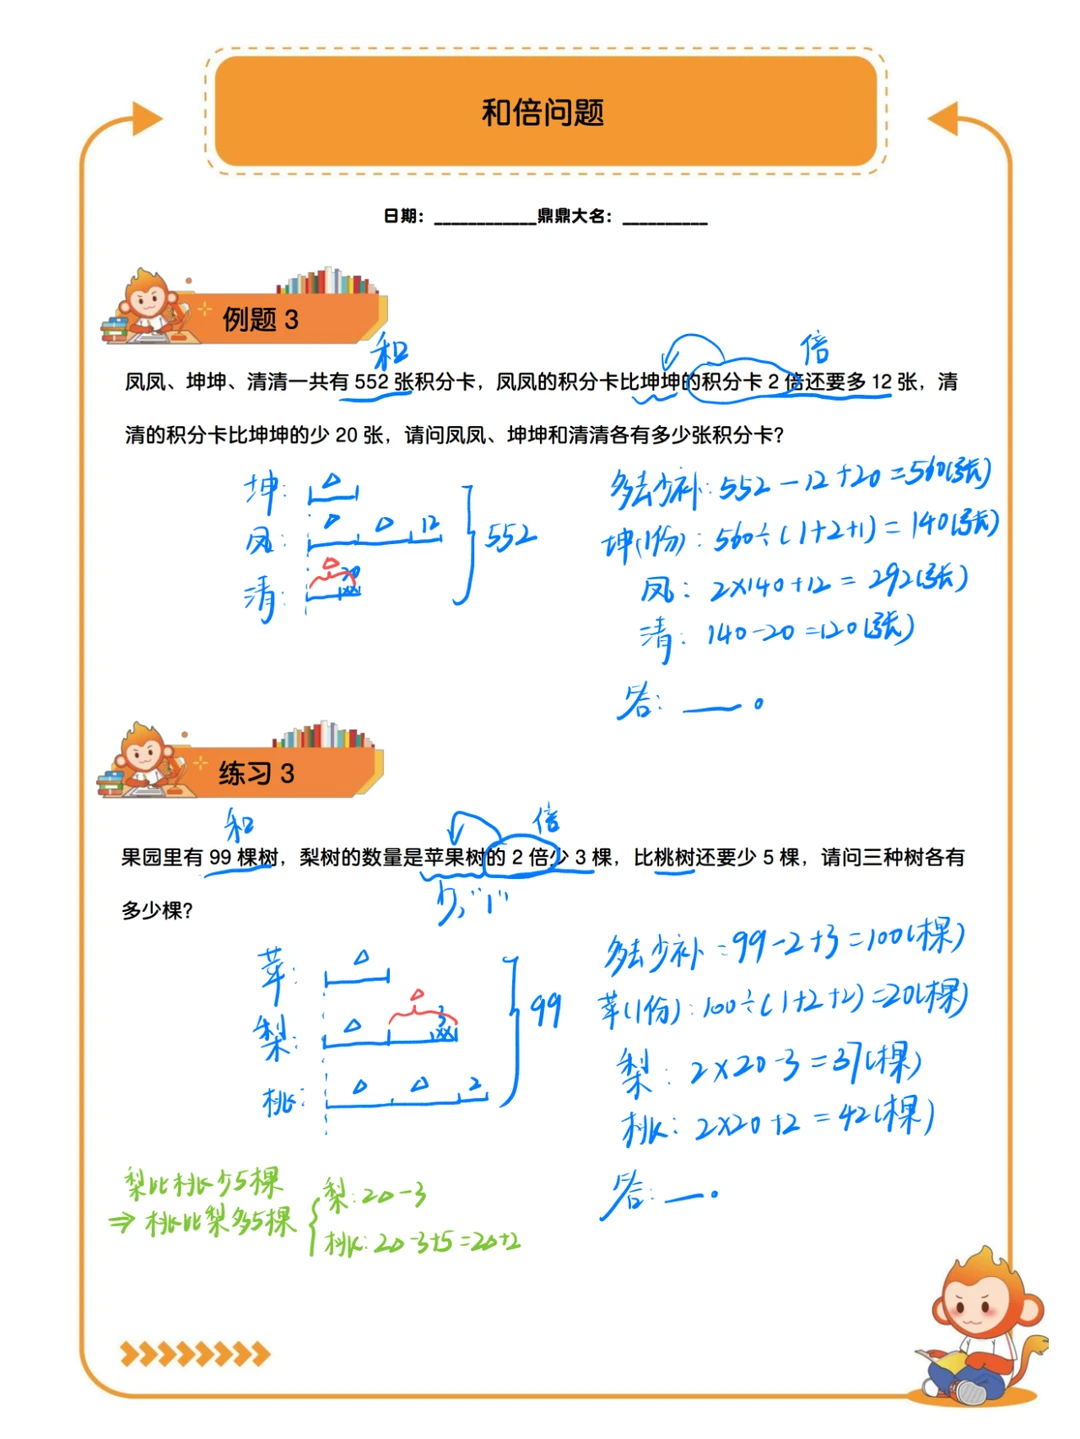 和倍问题
日期：____________鼎鼎大名：__________
例题 3
和
倍
凤凤、坤坤、清清一共有 552 张积分卡，凤凤的积分卡比坤坤的积分卡 2 倍还要多 12 张，清
清的积分卡比坤坤的少 20 张，请问凤凤、坤坤和清清各有多少张积分卡？
坤：△
凤：△ △ 12
清：△ 20
552
多去少补：552－12＋20＝560(张)
坤(1份)：560÷(1+2+1)＝140(张)
凤：2×140+12＝292(张)
清：140-20＝120(张)
答：——。
练习 3
和
倍
果园里有 99 棵树，梨树的数量是苹果树的 2 倍少 3 棵，比桃树还要少 5 棵，请问三种树各有
少，"1"
多少棵？
苹：△
梨：△ △ 3
桃：△ △ 2
99
多去少补：99-2+3＝100(棵)
苹(1份)：100÷(1+2+2)＝20(棵)
梨：2×20-3＝37(棵)
桃：2×20+2＝42(棵)
答：——。
梨比桃少5棵
⇒ 桃比梨多5棵
梨：2△-3
桃：2△-3+5=2△+2